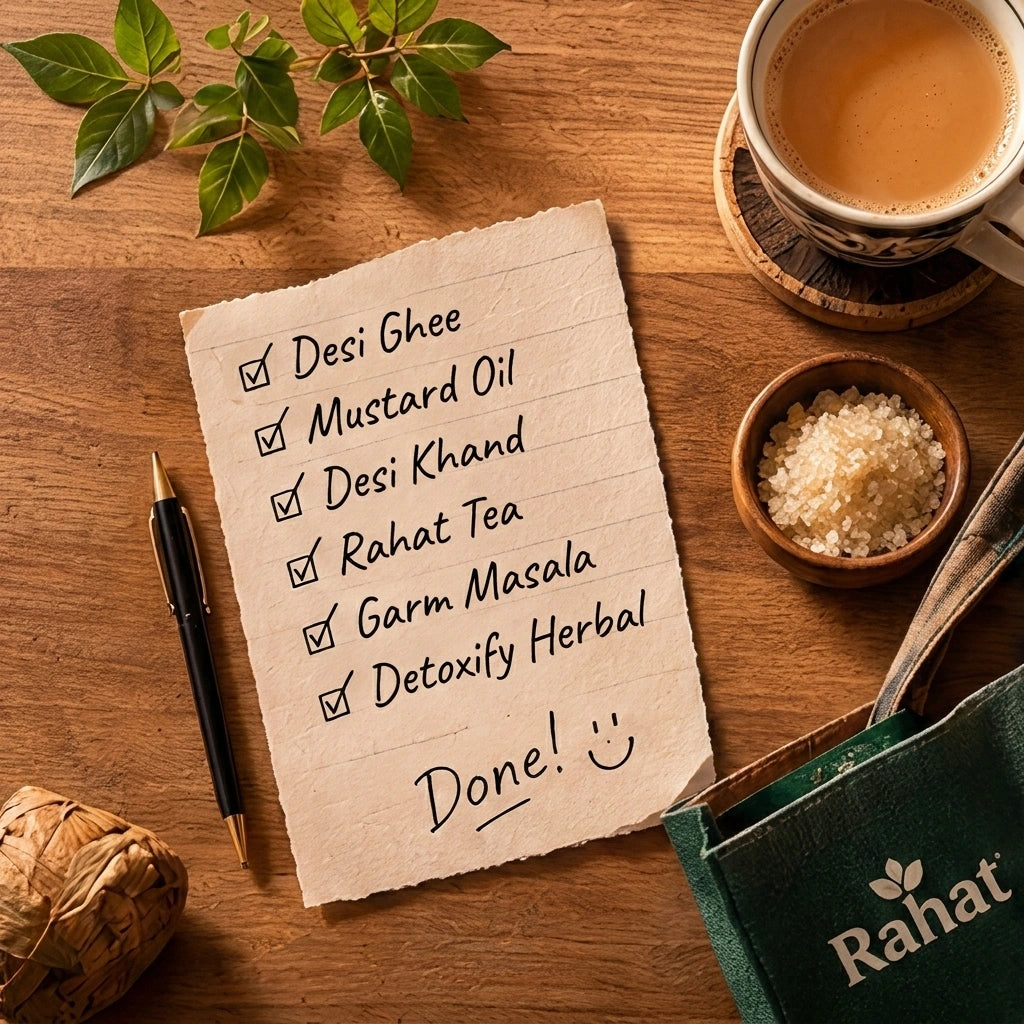 Desi Ghee
Mustard Oil
Desi Khand
Rahat Tea
Garm Masala
Detoxify Herbal
Done!
Rahat